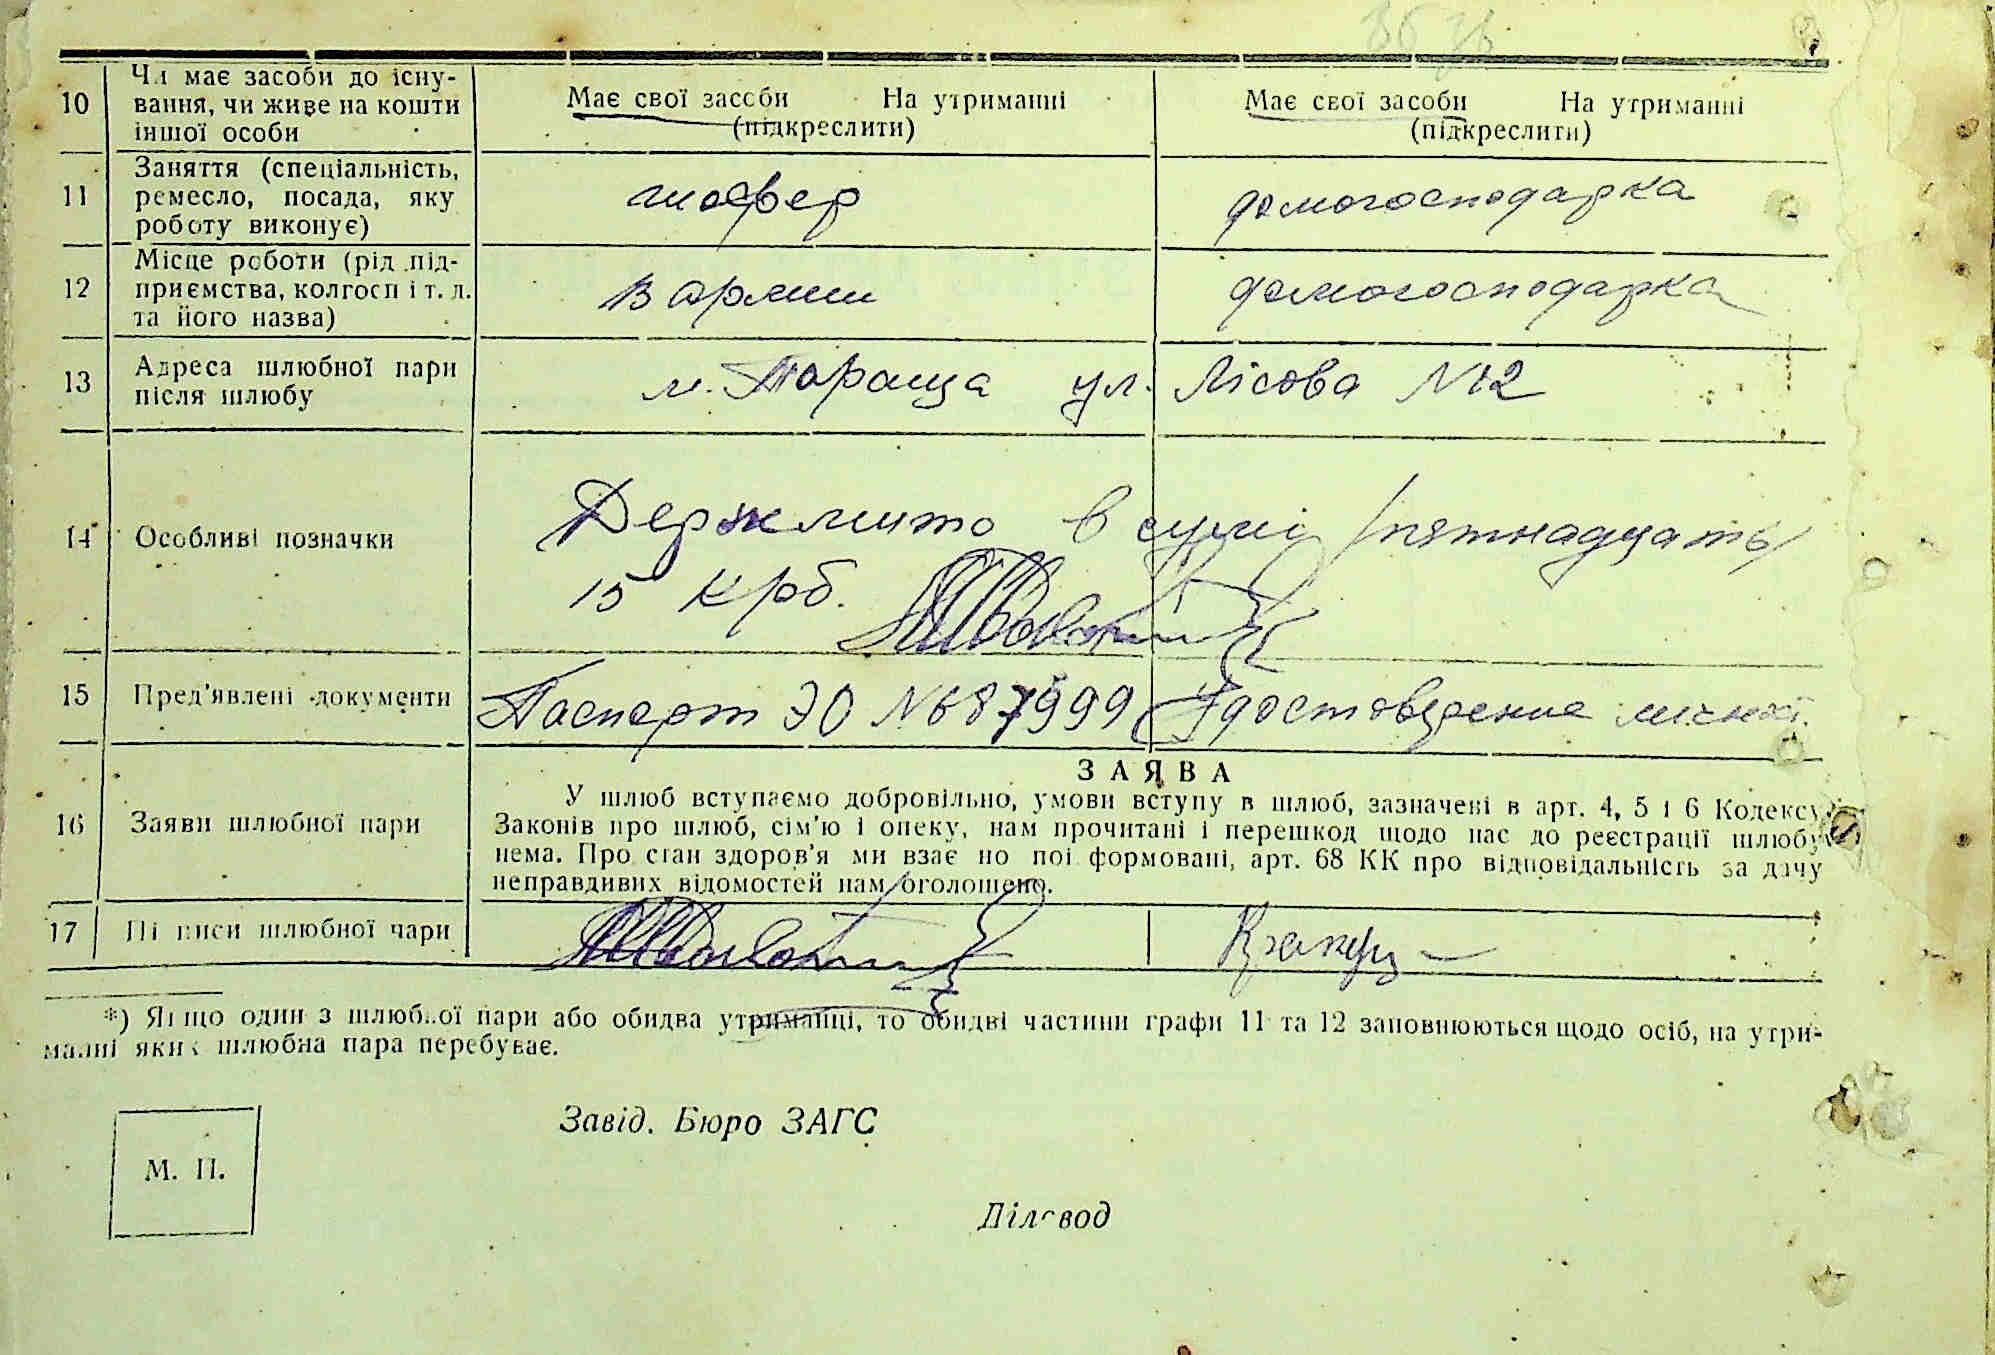 10 Чи має засоби до існу- Має свої засоби На утриманні Має свої засоби На утриманні
вання, чи живе на кошти (підкреслити) (підкреслити)
іншої особи
11 Заняття (спеціальність, шофер домогосподарка
ремесло, посада, яку
роботу виконує)
12 Місце роботи (рід під- в армии домогосподарка
приємства, колгосп і т. д.
та його назва)
13 Адреса шлюбної пари м. Тараща ул. Лісова N12
після шлюбу
14 Особливі позначки Держмито в сумі /пятнадцать/
15 крб.
15 Пред'явлені документи Паспорт ЭО N687999 Удостоверение личност.
ЗАЯВА
16 Заяви шлюбної пари У шлюб вступаємо добровільно, умови вступу в шлюб, зазначені в арт. 4, 5 і 6 Кодексу
Законів про шлюб, сім'ю і опеку, нам прочитані і перешкод щодо нас до реєстрації шлюбу
нема. Про стан здоров'я ми взаємно поінформовані, арт. 68 КК про відповідальність за дачу
неправдивих відомостей нам оголошено.
17 Підписи шлюбної пари
*) Якщо один з шлюбної пари або обидва утриманці, то обидві частини графи 11 та 12 заповнюються щодо осіб, на утри-
манні яких шлюбна пара перебуває.
Завід. Бюро ЗАГС
М. П.
Діловод